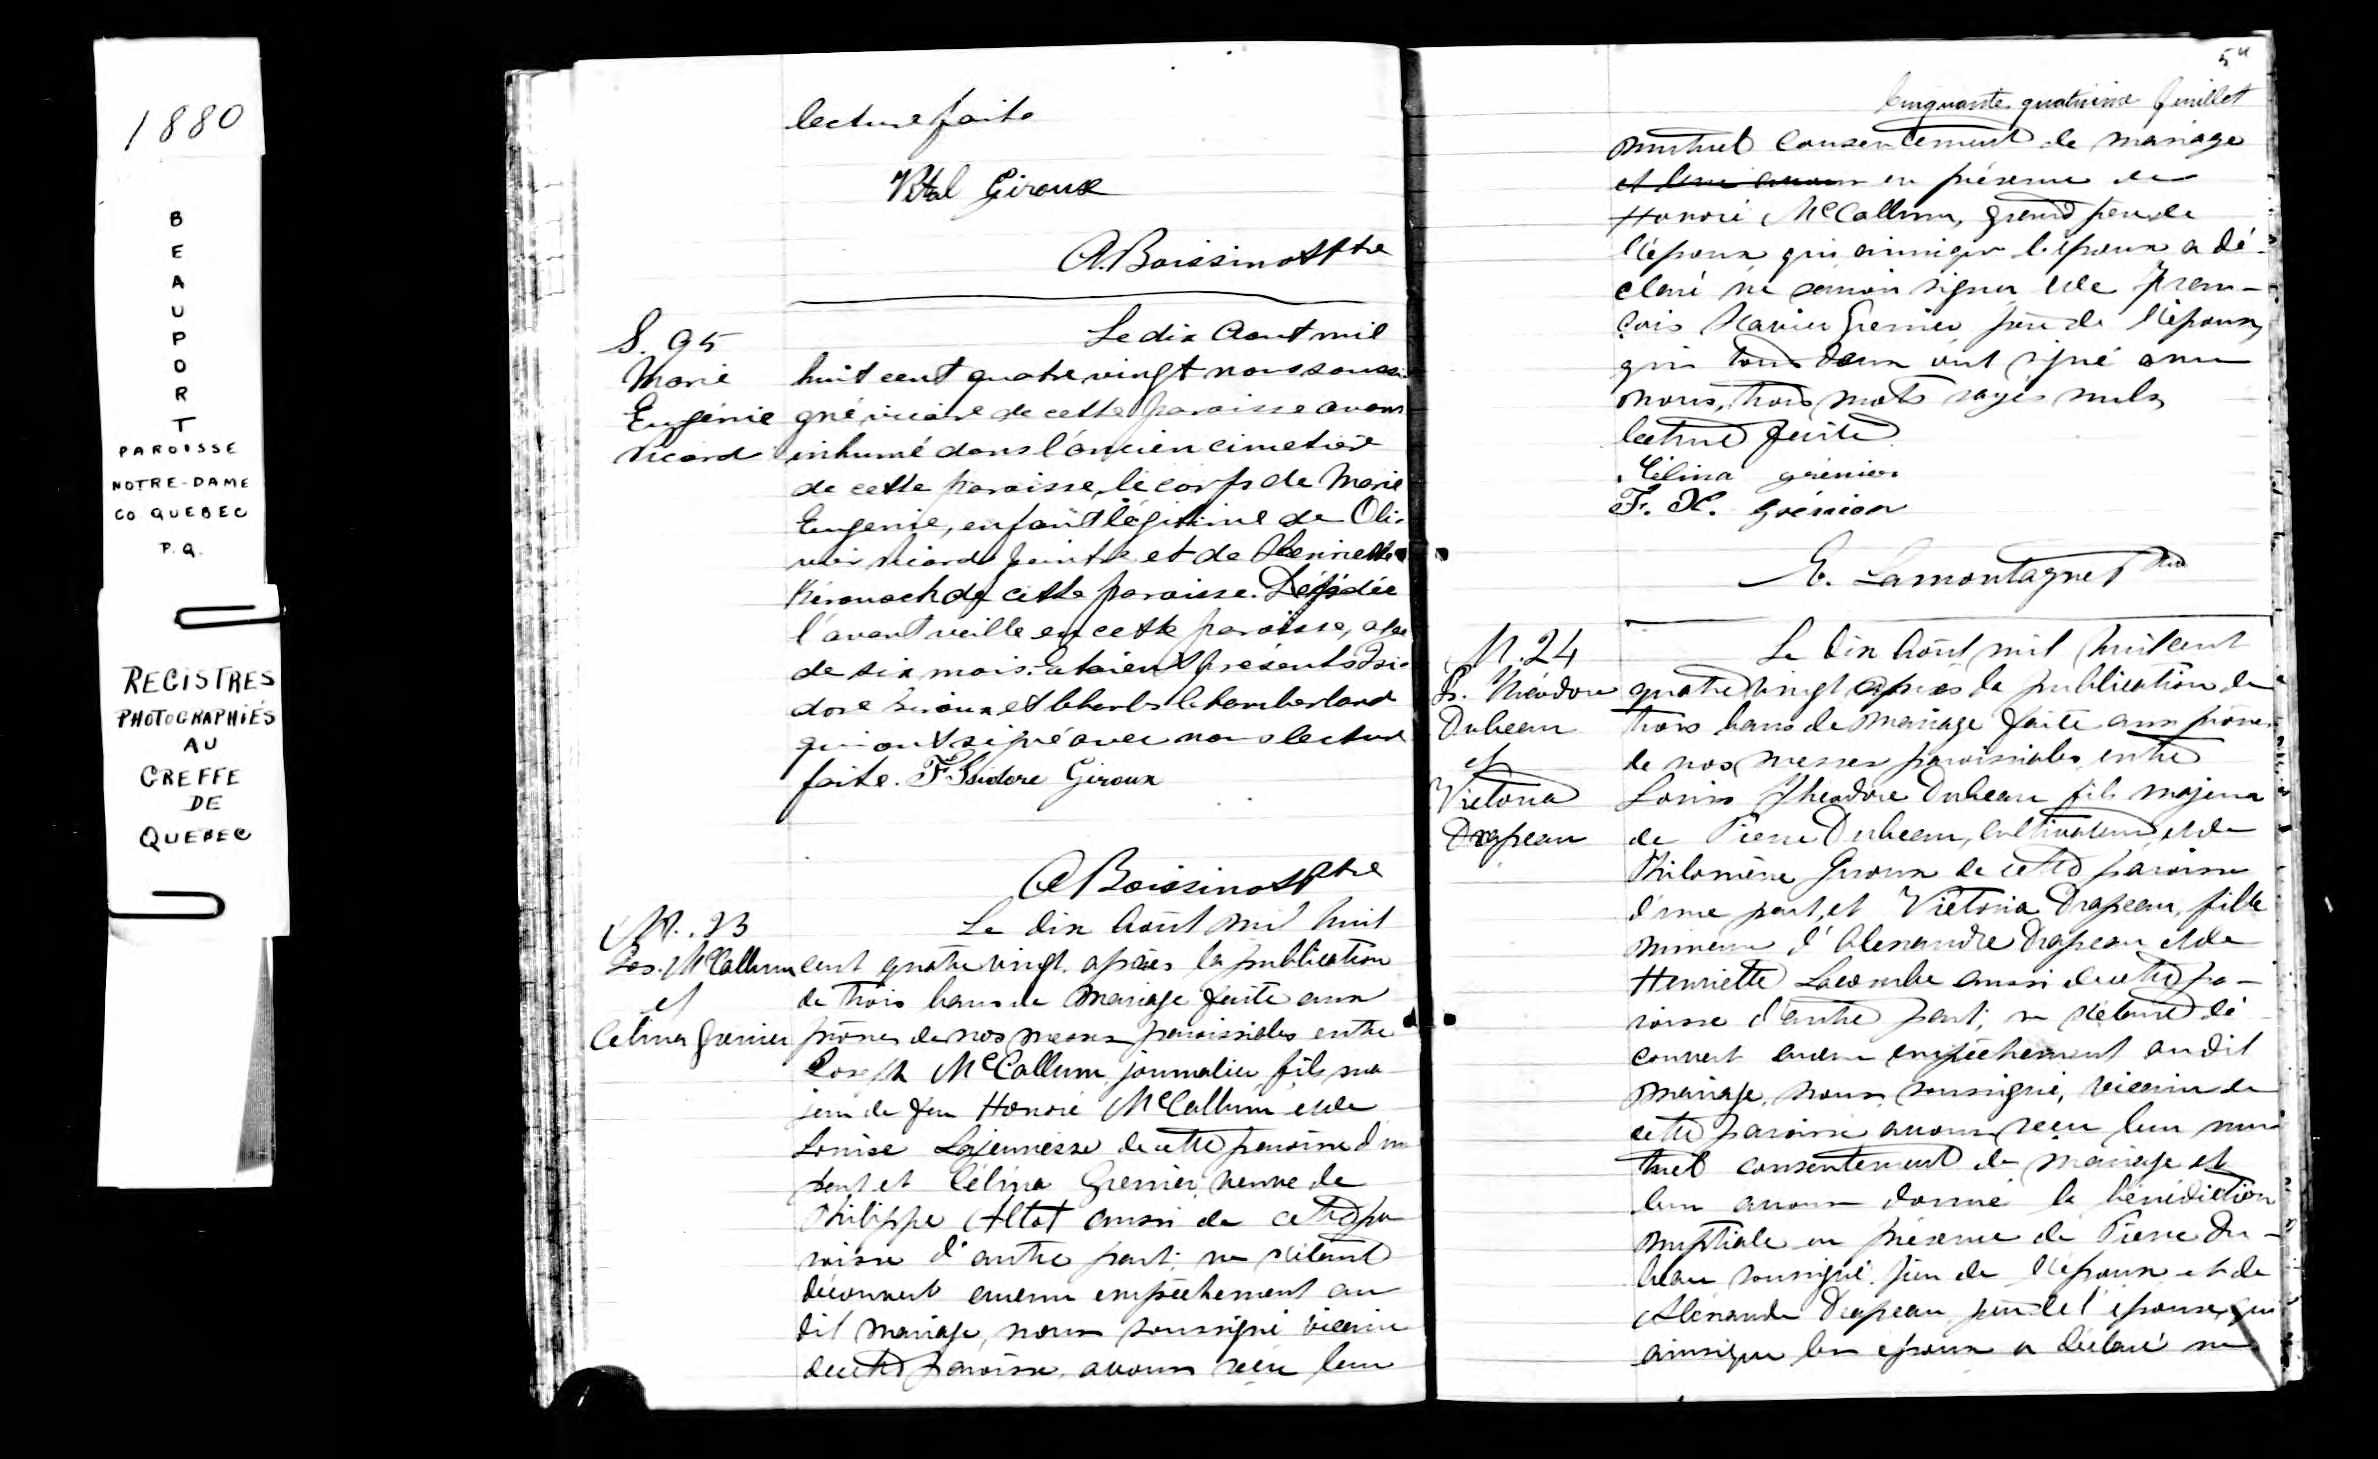 1880
BEAUPORT
PAROISSE
NOTRE-DAME
CO QUEBEC
P.Q.
REGISTRES
PHOTOGRAPHIÉS
AU
GREFFE
DE
QUEBEC
lecture faite
Vital Giroux
A. Boissinot Ptre
S. 95
Marie
Eugénie
Ricard
Le dix Aout mil
huit cent quatre vingt nous soussi
gné vicaire de cette paroisse avons
inhumé dans l'ancien cimetière
de cette paroisse, le corps de Marie
Eugenie, enfant légitime de Oli-
vier Ricard peintre et de Henriette
de cette paroisse. Décédée
l'avant veille en cette paroisse, agée
de six mois. Etaient présents Isi-
dore Giroux et Charles Chamberland
qui ont signé avec nous lecture
faite. F. Isidore Giroux
A Boissinot Ptre
M. 23
Jos. McCallum
et
Celina Grenier
Le dix Août mil huit
cent quatre vingt, après la publication
de trois bans de mariage faite aux
prônes de nos messes paroissiales entre
Joseph McCallum, journalier fils ma
jeur de feu Honoré McCallum et de
Louise Lajeunesse de cette paroisse d'une
part et Célina Grenier, veuve de
Philippe aussi de cette pa
roisse d'autre part; ne s'étant
découvert aucun empêchement au
dit mariage, nous soussigné vicaire
de cette paroisse, avons reçu leur
54
Cinquante quatrième feuillet
mutuel consentement de mariage
et leur avons en présence de
Honoré McCallum, grand père de
l'époux qui ainsi que l'époux a dé-
claré ne savoir signer et de Fran-
çois Xavier Grenier père de l'épouse,
qui tous deux ont signé avec
nous, trois mots rayés nuls,
lecture faite
Célina grénier
F. X. grénier
E. Lamontagne Ptre
M. 24
Ls. Théodore
Dubeau
et
Victoria
Drapeau
Le dix Août mil huit cent
quatre vingt après la publication de
trois bans de mariage faite aux prônes
de nos messes paroissiales entre
Louis Théodore Dubeau fils majeur
de Pierre Dubeau, cultivateur, et de
Philomène Giroux de cette paroisse
d'une part, et Victoria Drapeau, fille
mineure d'Alexandre Drapeau et de
Henriette Lacombe aussi de cette pa-
roisse d'autre part; ne s'étant dé
couvert aucun empêchement au dit
mariage, nous, soussigné, vicaire de
cette paroisse avons reçu leur mu
tuel consentement de mariage et
leur avons donné la bénédiction
nuptiale en présence de Pierre Du-
beau soussigné père de l'époux, et de
Alexandre Drapeau, père de l'épouse, qui
ainsi que les époux a déclaré ne